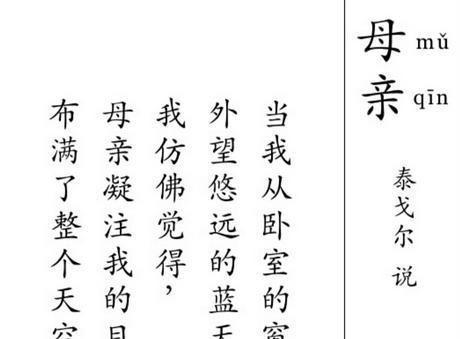 母 mǔ
亲 qīn
泰戈尔 说
当我从卧室的窗
外望悠远的蓝天
我仿佛觉得，
母亲凝注我的目
布满了整个天空